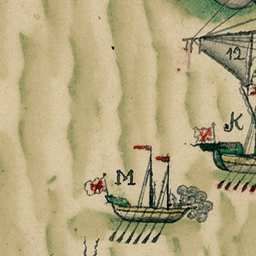 12
K
M